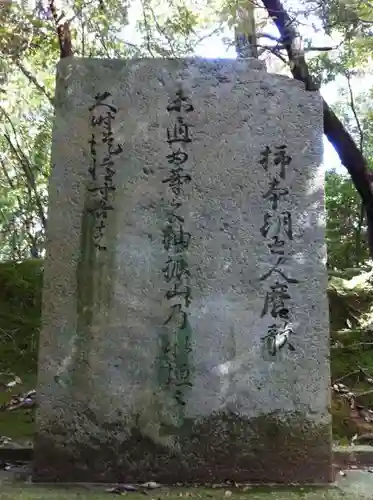 柿本朝臣人麿歌
未通女等之袖振山乃水垣之
久時従憶寸吾者